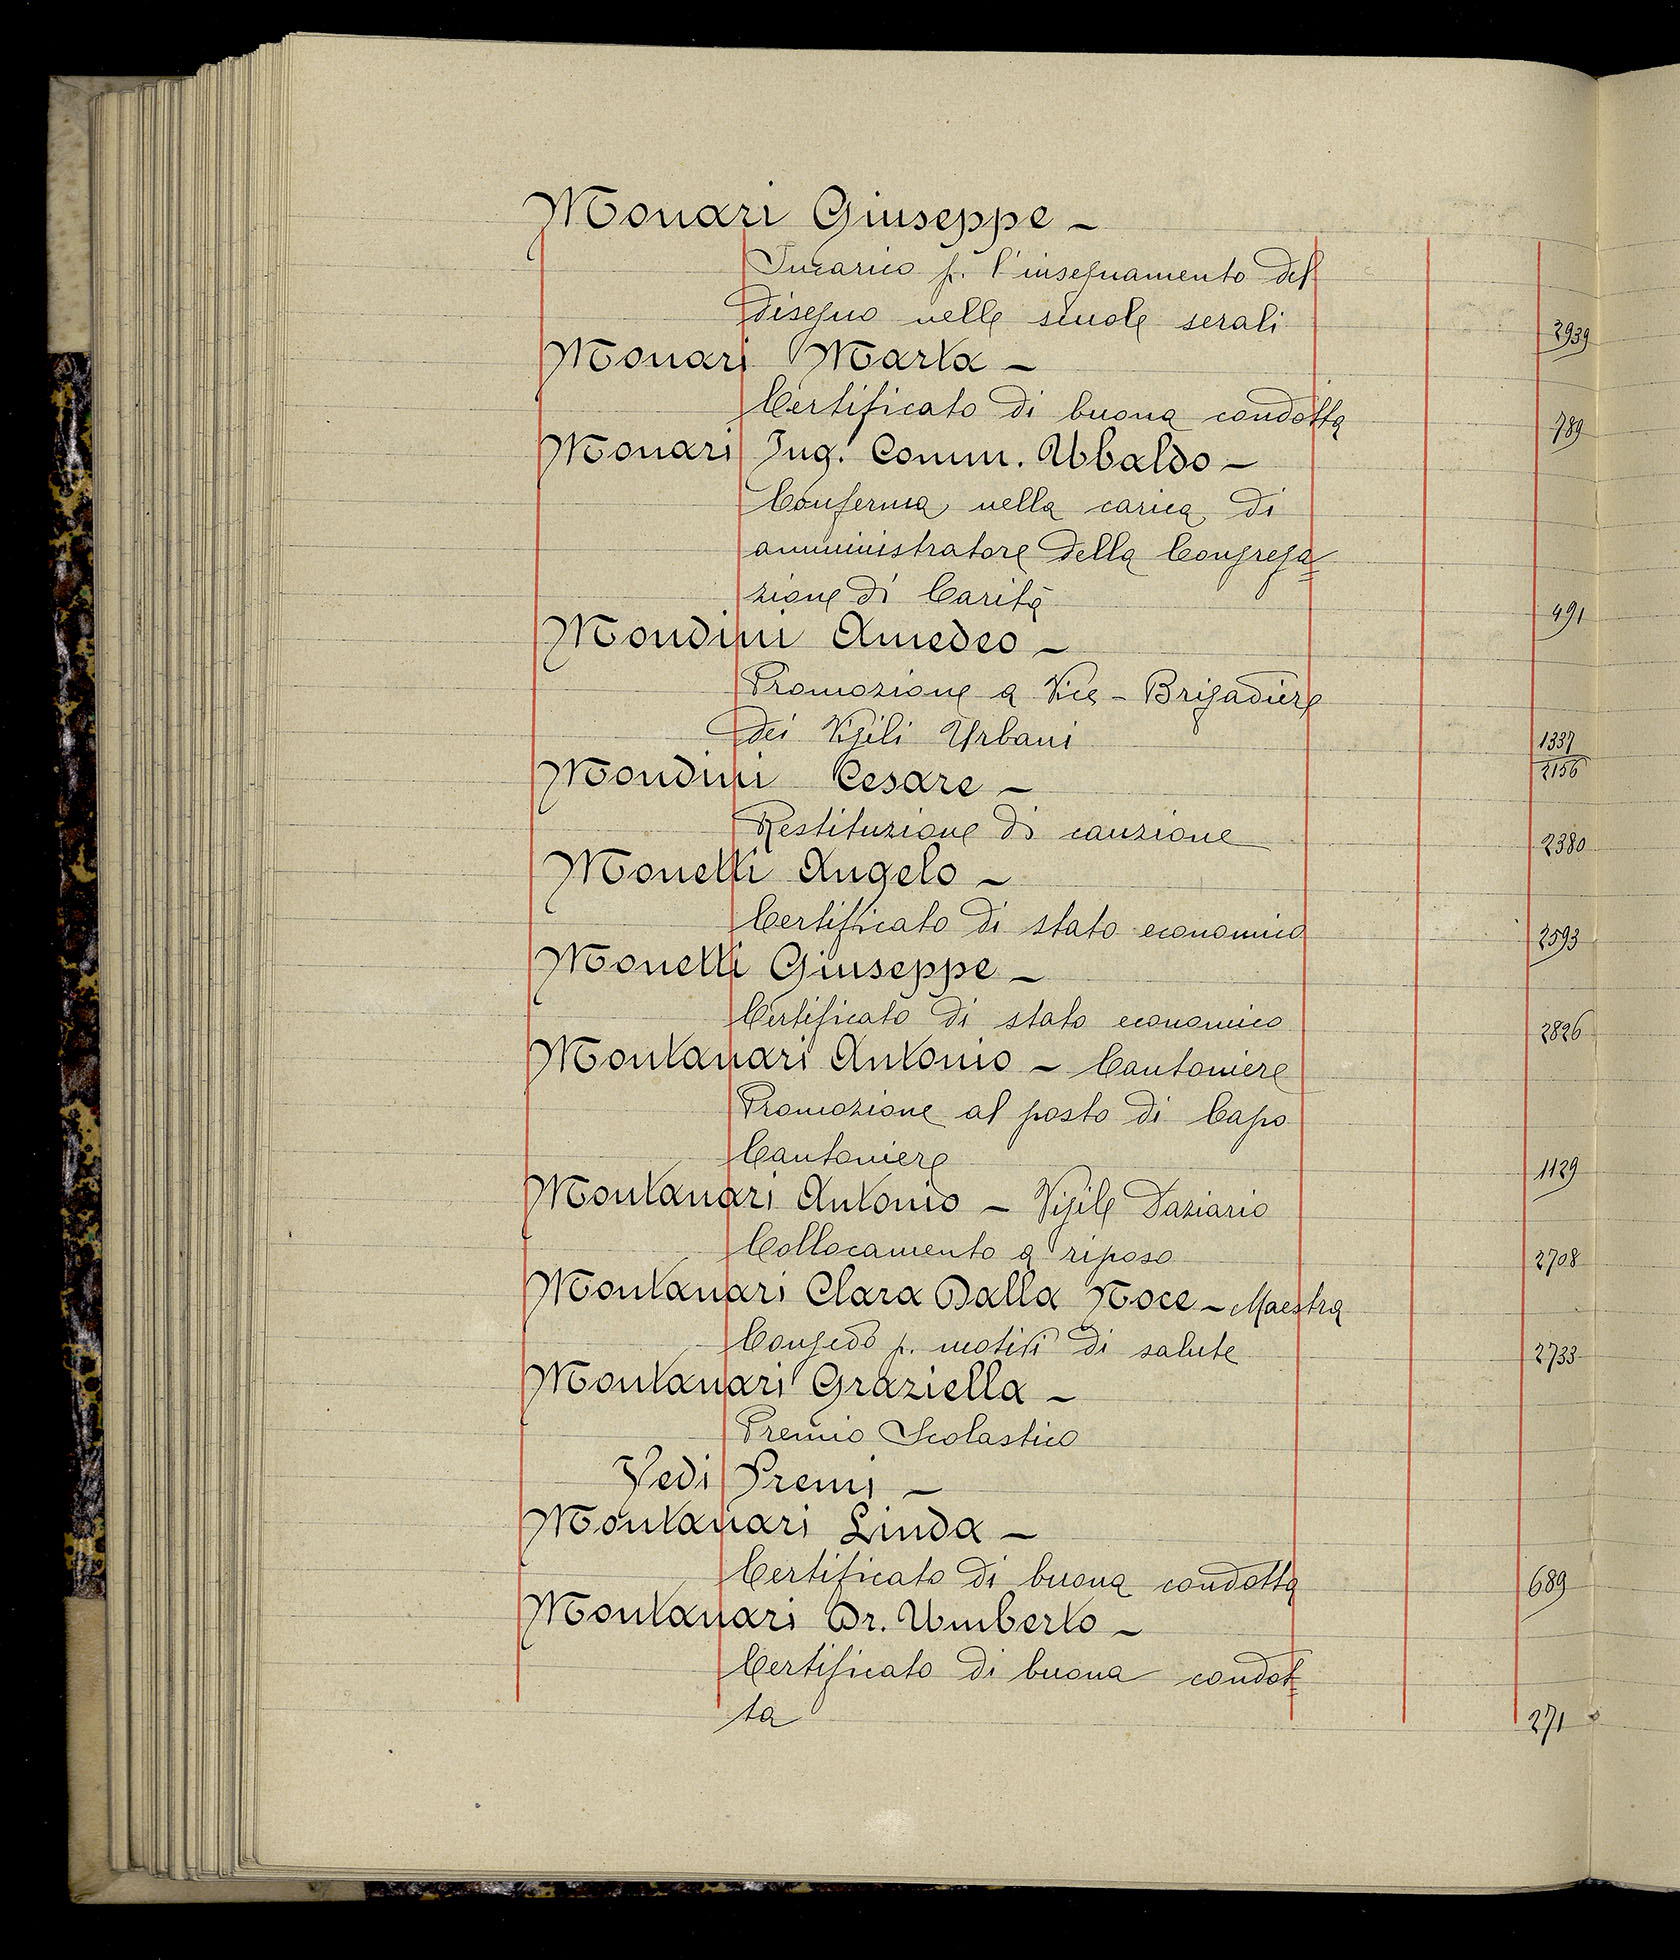 Monari Giuseppe –
Incarico p. l'insegnamento del
disegno nelle scuole serali 2939
Monari Marta –
Certificato di buona condotta 789
Monari Ing. Comm. Ubaldo –
Conferma nella carica di
amministratore della Congrega=
zione di Carità 491
Mondini Amedeo –
Promozione a Vice-Brigadiere
dei Vigili Urbani 1337
2156
Mondini Cesare –
Restituzione di cauzione 2380
Monetti Angelo –
Certificato di stato economico 2593
Monetti Giuseppe –
Certificato di stato economico 2826
Montanari Antonio – Cantoniere
Promozione al posto di Capo
Cantoniere 1129
Montanari Antonio – Vigile Daziario
Collocamento a riposo 2708
Montanari Clara Dalla Noce – Maestra
Congedo p. motivi di salute 2733
Montanari Graziella –
Premio Scolastico
Vedi Premi –
Montanari Linda –
Certificato di buona condotta 689
Montanari Dr. Umberto –
Certificato di buona condot=
ta 271